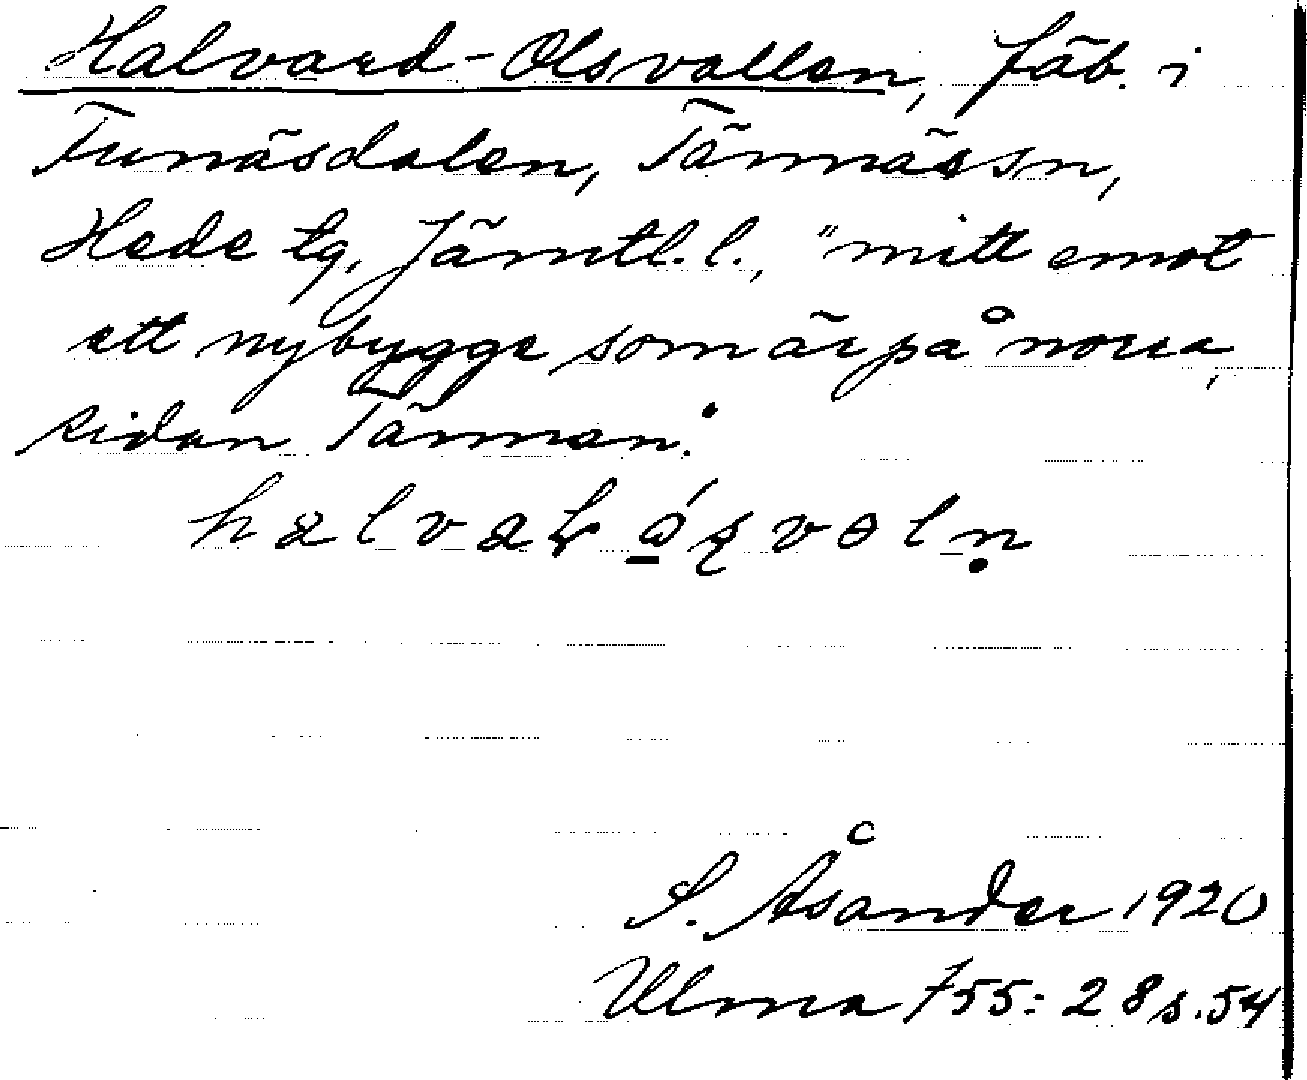 Halvard-Olsvallen, fäb. i
Funäsdalen, Tännäs sn,
Hede tg, Jämtl. l., "mitt emot
ett nybygge som är på norra
sidan Tännan".
S. Åsander 1920
Ulma 755:28 s. 54